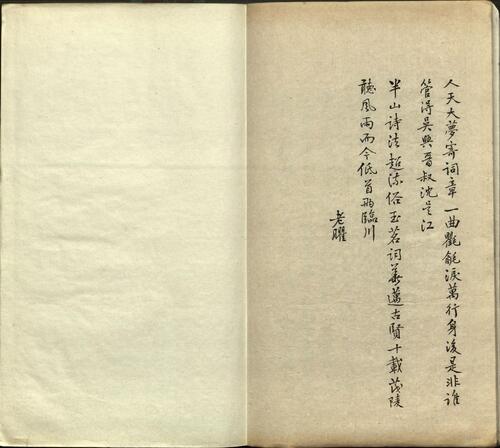 人天大夢寄詞章一曲氍毹淚萬行身後是非誰
管得吳興晉叔沈吳江
半山詩法超流俗玉茗詞華邁古賢十載茂陵
聽風雨而今低首兩臨川
老臞